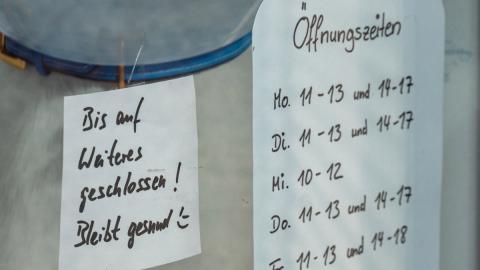 Bis auf
Weiteres
geschlossen!
Bleibt gesund
Öffnungszeiten
Mo. 11-13 und 14-17
Di. 11-13 und 14-17
Mi. 10-12
Do. 11-13 und 14-17
11-13 und 14-18